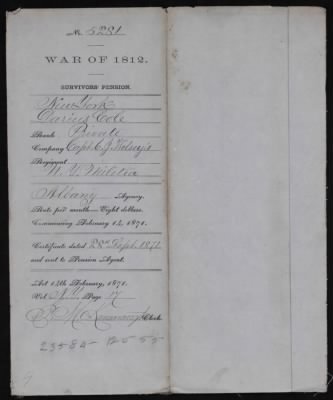 No. 5281
WAR OF 1812.
SURVIVORS' PENSION.
New York
Darius Cole
Rank Private
Company Capt. C. J. Kelsey's
Regiment
N. Y. Militia
Albany Agency.
Rate per month—Eight dollars.
Commencing February 14, 1871.
Certificate dated 28th Sept. 1871
and sent to Pension Agent.
Act 14th February, 1871.
Vol. N. Y. Page 17
Clerk.
23585 12555